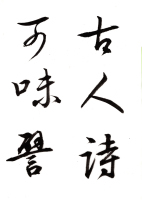 古人詩
可味譽